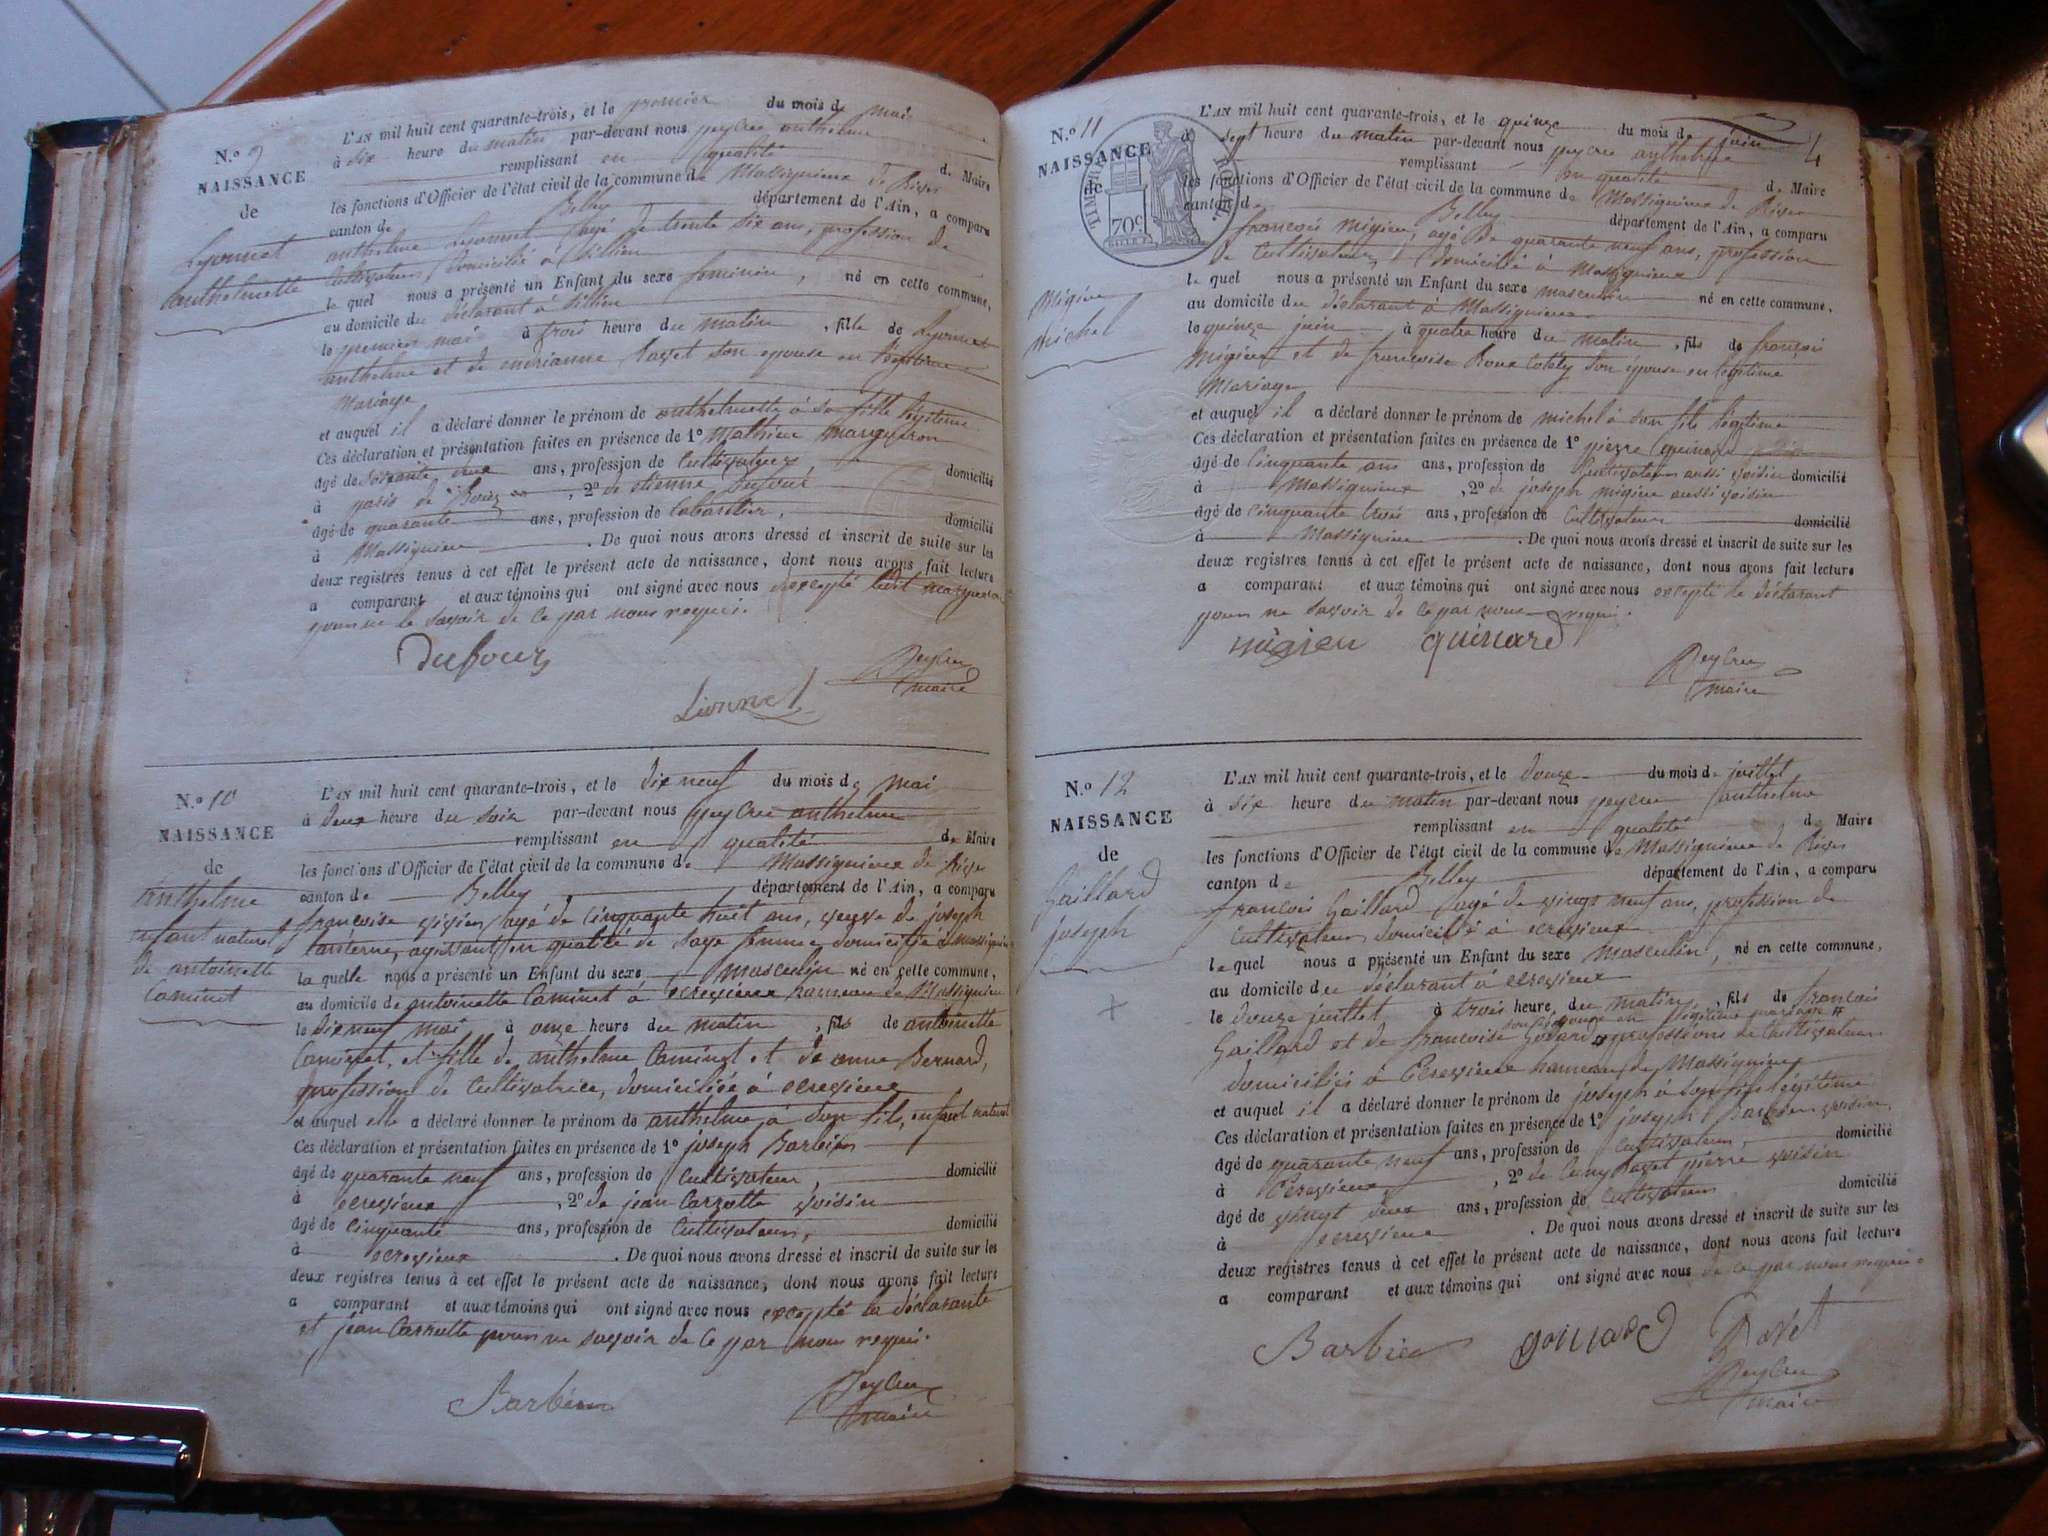 N.o 9
NAISSANCE
de
Lyonnet
anthelmette
L'AN mil huit cent quarante-trois, et le premier du mois de mai
à six heure du matin par-devant nous peycru anthelme
remplissant en qualité de Maire
les fonctions d'Officier de l'état civil de la commune de Massignieux de Rives
canton de Belley département de l'Ain, a comparu
anthelme Lyonnet âgé de trente six ans, profession de
Cultivateur domicilié à
le quel nous a présenté un Enfant du sexe feminin, né en cette commune,
au domicile du déclarant à
le premier mai à trois heure du matin, fille de Lyonnet
anthelme et de son epouse en légitime
Mariage
et auquel il a déclaré donner le prénom de anthelmette à sa fille légitime
Ces déclaration et présentation faites en présence de 1o Mathieu
âgé de soixante deux ans, profession de Cultivateur, domicilié
à , 2o de etienne
âgé de quarante ans, profession de Cabaretier, domicilié
à Massignieu . De quoi nous avons dressé et inscrit de suite sur les
deux registres tenus à cet effet le présent acte de naissance, dont nous avons fait lecture
a comparant et aux témoins qui ont signé avec nous excepté
pour ne le savoir de ce par nous requi.
Dufour
Lionnet
Peycru
maire
N.o 10
NAISSANCE
de
Anthelme
enfant naturel
de antoinette
Caminet
L'AN mil huit cent quarante-trois, et le dix neuf du mois de mai
à deux heure du soir par-devant nous peycru anthelme
remplissant en qualité de Maire
les fonctions d'Officier de l'état civil de la commune de Massignieux de Rives
canton de Belley département de l'Ain, a comparu
francoise âgé de cinquante huit ans, veuve de joseph
lanterne, agissant en qualité de sage femme, domicilié à Massignieu
la quelle nous a présenté un Enfant du sexe masculin né en cette commune,
au domicile de antoinette Caminet à ecrevieux hameau de Massignieu
le dix neuf mai à onze heure du matin, fils de antoinette
Caminet, et fille de anthelme Caminet et de anne Bernard,
profession de Cultivatrice, domiciliée à ecrevieux
et auquel elle a déclaré donner le prénom de anthelme à son fils, enfant naturel
Ces déclaration et présentation faites en présence de 1o joseph Barbier
âgé de quarante neuf ans, profession de Cultivateur, domicilié
à ecrevieux, 2o de jean Carrotte voisin
âgé de cinquante ans, profession de Cultivateur, domicilié
à ecrevieux . De quoi nous avons dressé et inscrit de suite sur les
deux registres tenus à cet effet le présent acte de naissance, dont nous avons fait lecture
a comparant et aux témoins qui ont signé avec nous excepté la déclarante
et jean Carrotte pour ne savoir de ce par nous requi.
Barbier
Peycru
maire
4
N.o 11
NAISSANCE
de
Migieu
michel
TIMBRE ROYAL
70c
L'AN mil huit cent quarante-trois, et le quinze du mois de juin
à sept heure du matin par-devant nous peycru anthelme
remplissant en qualité de Maire
les fonctions d'Officier de l'état civil de la commune de Massignieux de Rives
canton de Belley département de l'Ain, a comparu
françois Migieu, âgé de quarante neuf ans, profession
de Cultivateur, domicilié à Massignieux
le quel nous a présenté un Enfant du sexe masculin né en cette commune,
au domicile du déclarant à Massignieux
le quinze juin à quatre heure du matin, fils de françois
Migieu et de francoise Roux son épouse en légitime
Mariage
et auquel il a déclaré donner le prénom de michel à son fils légitime
Ces déclaration et présentation faites en présence de 1o pierre quinard
âgé de cinquante ans ans, profession de Cultivateur aussi voisin domicilié
à Massignieux, 2o de joseph migieu aussi voisin
âgé de cinquante trois ans, profession de Cultivateur domicilié
à Massignieu . De quoi nous avons dressé et inscrit de suite sur les
deux registres tenus à cet effet le présent acte de naissance, dont nous avons fait lecture
a comparant et aux témoins qui ont signé avec nous excepté le déclarant
pour ne savoir de ce par nous requi.
migieu quinard
Peycru
maire
N.o 12
NAISSANCE
de
Gaillard
joseph
L'AN mil huit cent quarante-trois, et le douze du mois de juillet
à six heure du matin par-devant nous peycru anthelme
remplissant en qualité de Maire
les fonctions d'Officier de l'état civil de la commune de Massignieux de Rives
canton de Belley département de l'Ain, a comparu
françois Gaillard âgé de vingt neuf ans, profession de
Cultivateur, domicilié à ecrevieux
le quel nous a présenté un Enfant du sexe masculin, né en cette commune,
au domicile du déclarant à ecrevieux
le douze juillet à trois heure du matin, fils de francois
son épouse en légitime mariage
Gaillard et de francoise Godard professions de Cultivateur
domiciliés à Ecrevieux hameau de Massignieux
et auquel il a déclaré donner le prénom de joseph à son fils légitime
Ces déclaration et présentation faites en présence de 1o joseph Barbier voisin
âgé de quarante neuf ans, profession de Cultivateur, domicilié
à Ecrevieux, 2o de pierre voisin
âgé de vingt deux ans, profession de Cultivateur domicilié
à ecrevieux . De quoi nous avons dressé et inscrit de suite sur les
deux registres tenus à cet effet le présent acte de naissance, dont nous avons fait lecture
a comparant et aux témoins qui ont signé avec nous de ce par nous requi.
Barbier Ravet
Peycru
maire